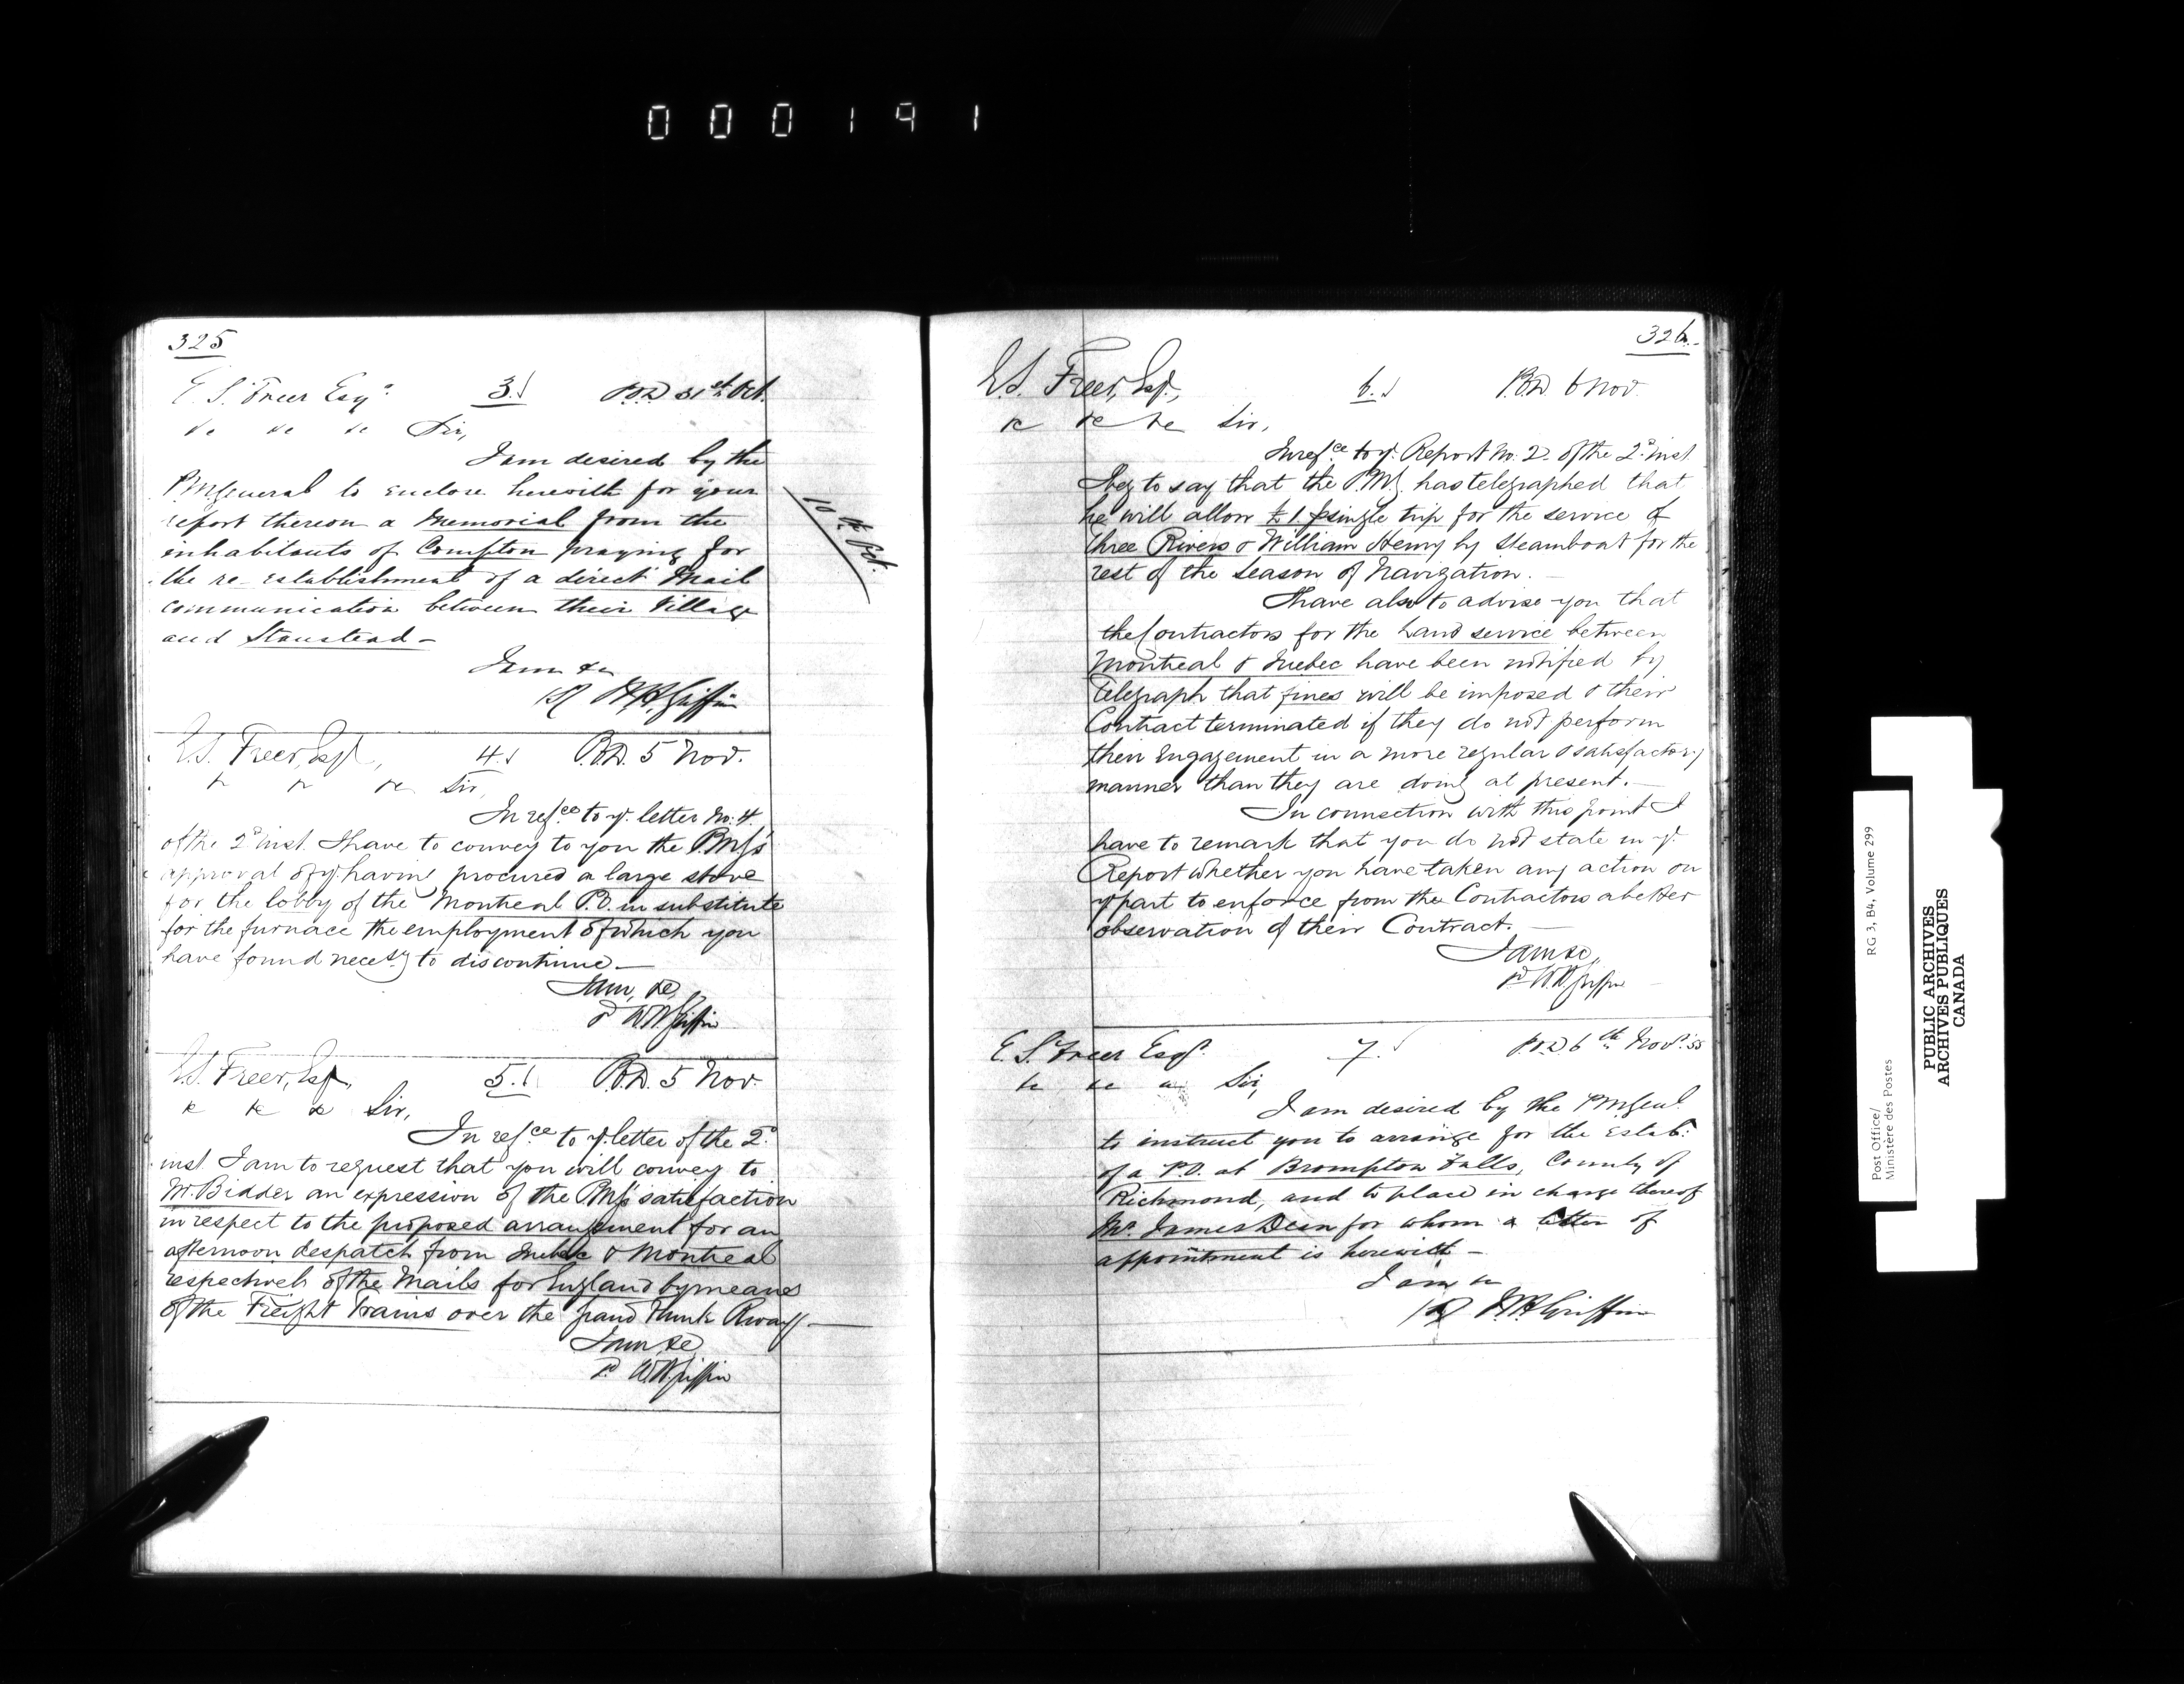 000191
325
E. S. Freer Esqr. 3. P.O.D 31st Oct.
&c &c &c Sir,
I am desired by the
P M General to enclose herewith for your
report thereon a Memorial from the
inhabitants of Compton praying for
the re-establishment of a direct Mail
communication between their Village
and Stanstead -
I am &c
W H Griffin
10th Oct.
E.S. Freer, Esqr, 4. P.O.D. 5 Nov.
&c &c &c Sir,
In refce to yr. letter No: 4.
of the 2d inst. I have to convey to you the P.M.G's
approval of yr. having procured a large stove
for the lobby of the Montreal P.O. in substitute
for the furnace the employment of which you
have found necessy to discontinue. —
I am, &c,
W H Griffin
E.S. Freer, Esqr, 5. P.O.D. 5 Nov.
&c &c &c Sir,
In refce to yr. letter of the 2d
inst. I am to request that you will convey to
Mr. Bidder an expression of the P.M.G's satisfaction
in respect to the proposed arrangement for an
afternoon despatch from Quebec & Montreal
respectively of the Mails for England by means
of the Freight trains over the Grand Trunk Rway. —
I am, &c
W H Griffin
326.
E.S. Freer, Esqr, 6. P.O.D. 6 Nov.
&c &c &c Sir,
In refce to yr. Report No: 2. of the 2d inst
I beg to say that the P.M.G. has telegraphed that
he will allow £1. p single trip for the service of
Three Rivers & William Henry by steamboat for the
rest of the season of Navigation. —
I have also to advise you that
the Contractors for the Land service between
Montreal & Quebec have been notified by
Telegraph that fines will be imposed & their
Contract terminated if they do not perform
their Engagement in a more regular & satisfactory
manner than they are doing at present. —
In connection with this point I
have to remark that you do not state in yr.
Report whether you have taken any action on
yr part to enforce from the Contractors a better
observation of their Contract. —
I am &c,
W H Griffin
E. S. Freer Esqr. 7. P.O.D 6th Novr. 55
&c &c &c Sir,
I am desired by the P M Genl.
to instruct you to arrange for the Estabt.
of a P.O. at Brompton Falls, County of
Richmond, and to place in charge thereof
Mr. James Dean for whom a letter of
appointment is herewith -
I am &c
W H Griffin
Post Office/
Ministère des Postes
RG 3, B4, Volume 299
PUBLIC ARCHIVES
ARCHIVES PUBLIQUES
CANADA